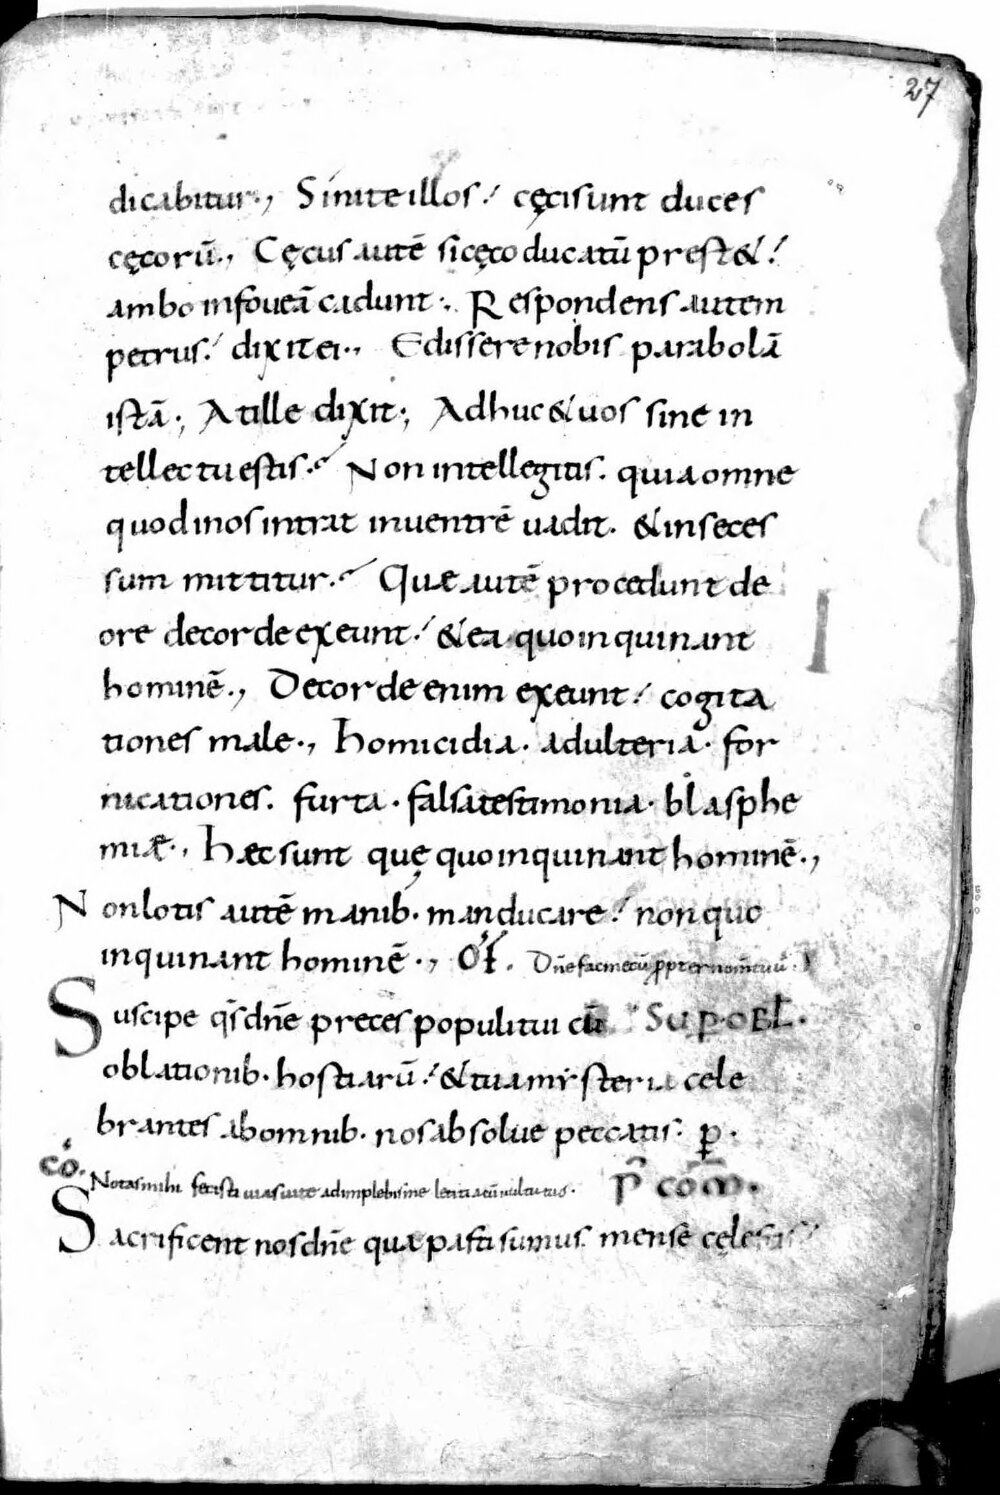 27
dicabitur., Sinite illos. cęci sunt duces
cęcorū., Cęcus autē si cęco ducatū prest&.
ambo in foueā cadunt., Respondens autem
petrus. dixit ei., Edissere nobis parabolā
istā., At ille dixit., Adhuc & uos sine in
tellectu estis. Non intellegitis. quia omne
quod in os intrat in uentrē uadit. & in seces
sum mittitur. Quae autē procedunt de
ore de corde exeunt. & ea quoinquinant
hominē., De corde enim exeunt. cogita
tiones male., homicidia. adulteria. for
nicationes. furta. falsa testimonia. blasphe
miæ., Hæc sunt quę quoinquinant hominē.,
Non lotis autē manib. manducare. non quo
inquinant hominē., Of. Dn̄e fac mecū ꝓpter nom̄ tuū.
Suscipe qs̄ dn̄e preces populi tui cū SUP OBL.
oblationib. hostiarū. & tua mysteria cele
brantes ab omnib. nos absolue peccatis. p.
cō. Notas mihi fecisti uias uite adimplebis me letitia cū uultu tuo. P̄ cōm̄.
Sacrificent nos dn̄e qua pasti sumus mense celestis